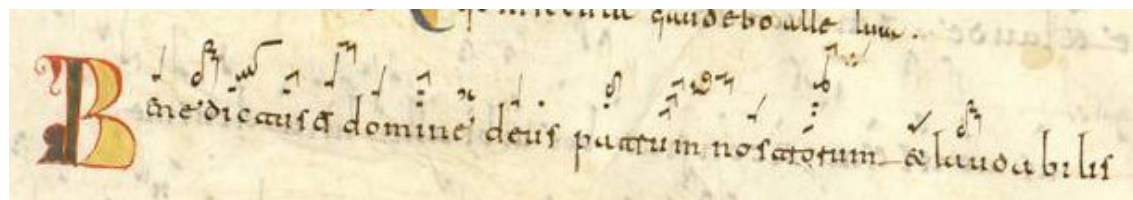 gaudebo alle luia.
Benedictus es domine deus patrum nostrorum & laudabilis